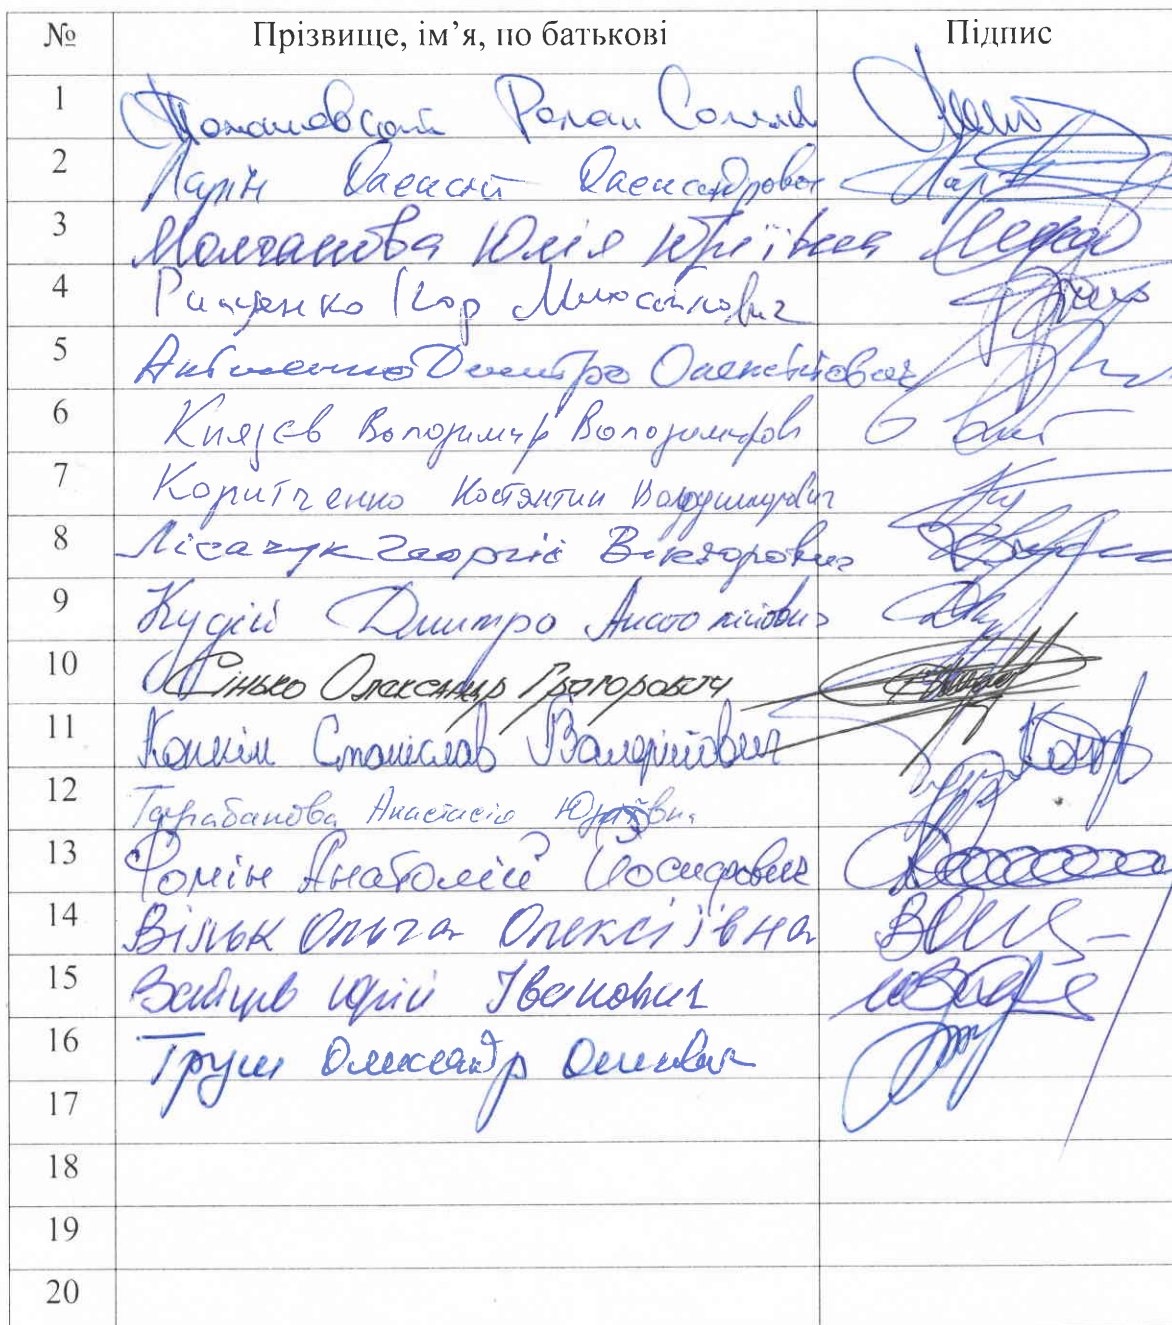 № Прізвище, ім’я, по батькові Підпис
1 Роман
2 Ларін Олексій Олександрович
3 Молчанова Юлія Юріївна
4 Ігор
5 Дмитро Олексійович
6 Князєв Володимир Володимиров
7 Коритченко Костянтин Володимирович
8 Лісачук Георгій Вікторович
9 Кудій Дмитро Анатолійович
10 Сінько Олександр Григорович
11 Конкін Станіслав Валерійович
12 Тарабанова Анастасія Юріївна
13 Фомін Анатолій Йосифович
14 Вільк Ольга Олексіївна
15 Зайцев Юрій Іванович
16 Труш Олександр
17
18
19
20